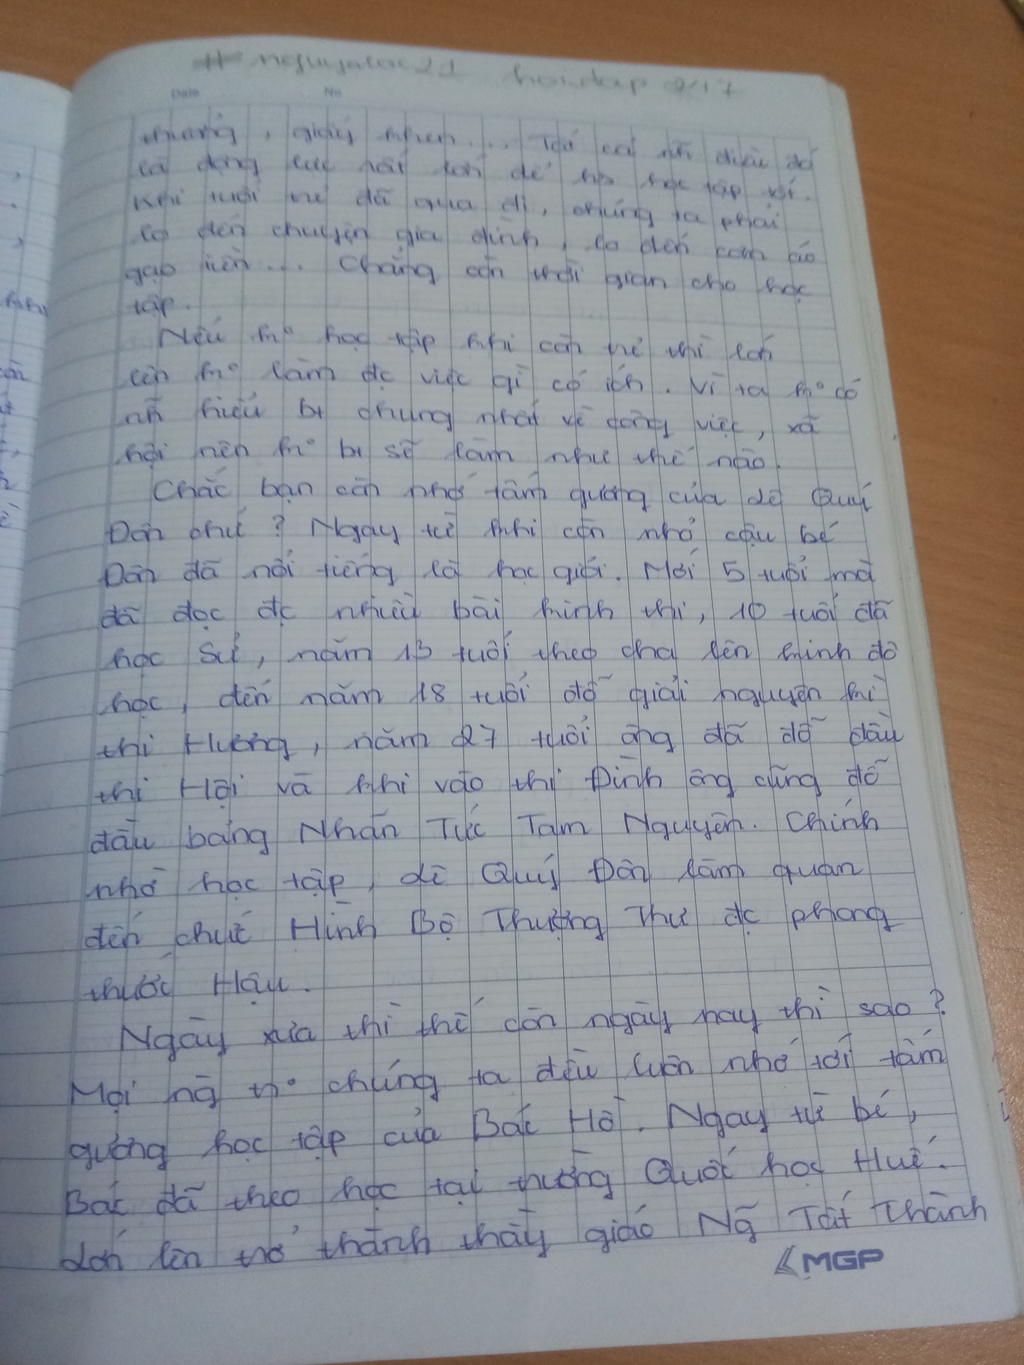 # nguyaloc21 hoidap 247
Date No
thưởng, giấy khen... Tất cả nh̃ điều đó
là động lực rất lớn để hs học tập tốt.
Khi tuổi trẻ đã qua đi, chúng ta phải
lo đến chuyện gia đình, lo đến cơm áo
gạo tiền... Chẳng còn thời gian cho học
tập.
Nếu k° học tập khi còn trẻ thì lớn
lên k° làm đc việc gì có ích. Vì ta k° có
nh̃ hiểu bt chung nhất về công việc, xã
hội nên k° bt sẽ làm như thế nào.
Chắc bạn còn nhớ tấm gương của Lê Quý
Đôn chứ? Ngay từ khi còn nhỏ cậu bé
Đôn đã nổi tiếng là học giỏi. Mới 5 tuổi mà
đã đọc đc nhiều bài kinh thi, 10 tuổi đã
học Sử, năm 13 tuổi theo cha lên kinh đô
học, đến năm 18 tuổi đỗ giải nguyên kì
thi Hương, năm 27 tuổi ông đã đỗ đầu
thi Hội và khi vào thi Đình ông cũng đỗ
đầu bảng Nhãn Tức Tam Nguyên. Chính
nhờ học tập, Lê Quý Đôn làm quan
đến chức Hình Bộ Thượng Thư đc phong
tước Hậu.
Ngày xưa thì thế còn ngày nay thì sao?
Mọi ng̃ tr° chúng ta đều luôn nhớ tới tấm
gương học tập của Bác Hồ. Ngay từ bé,
Bác đã theo học tại trường Quốc học Huế.
Lớn lên trở thành thầy giáo Ng̃ Tất Thành
MGP